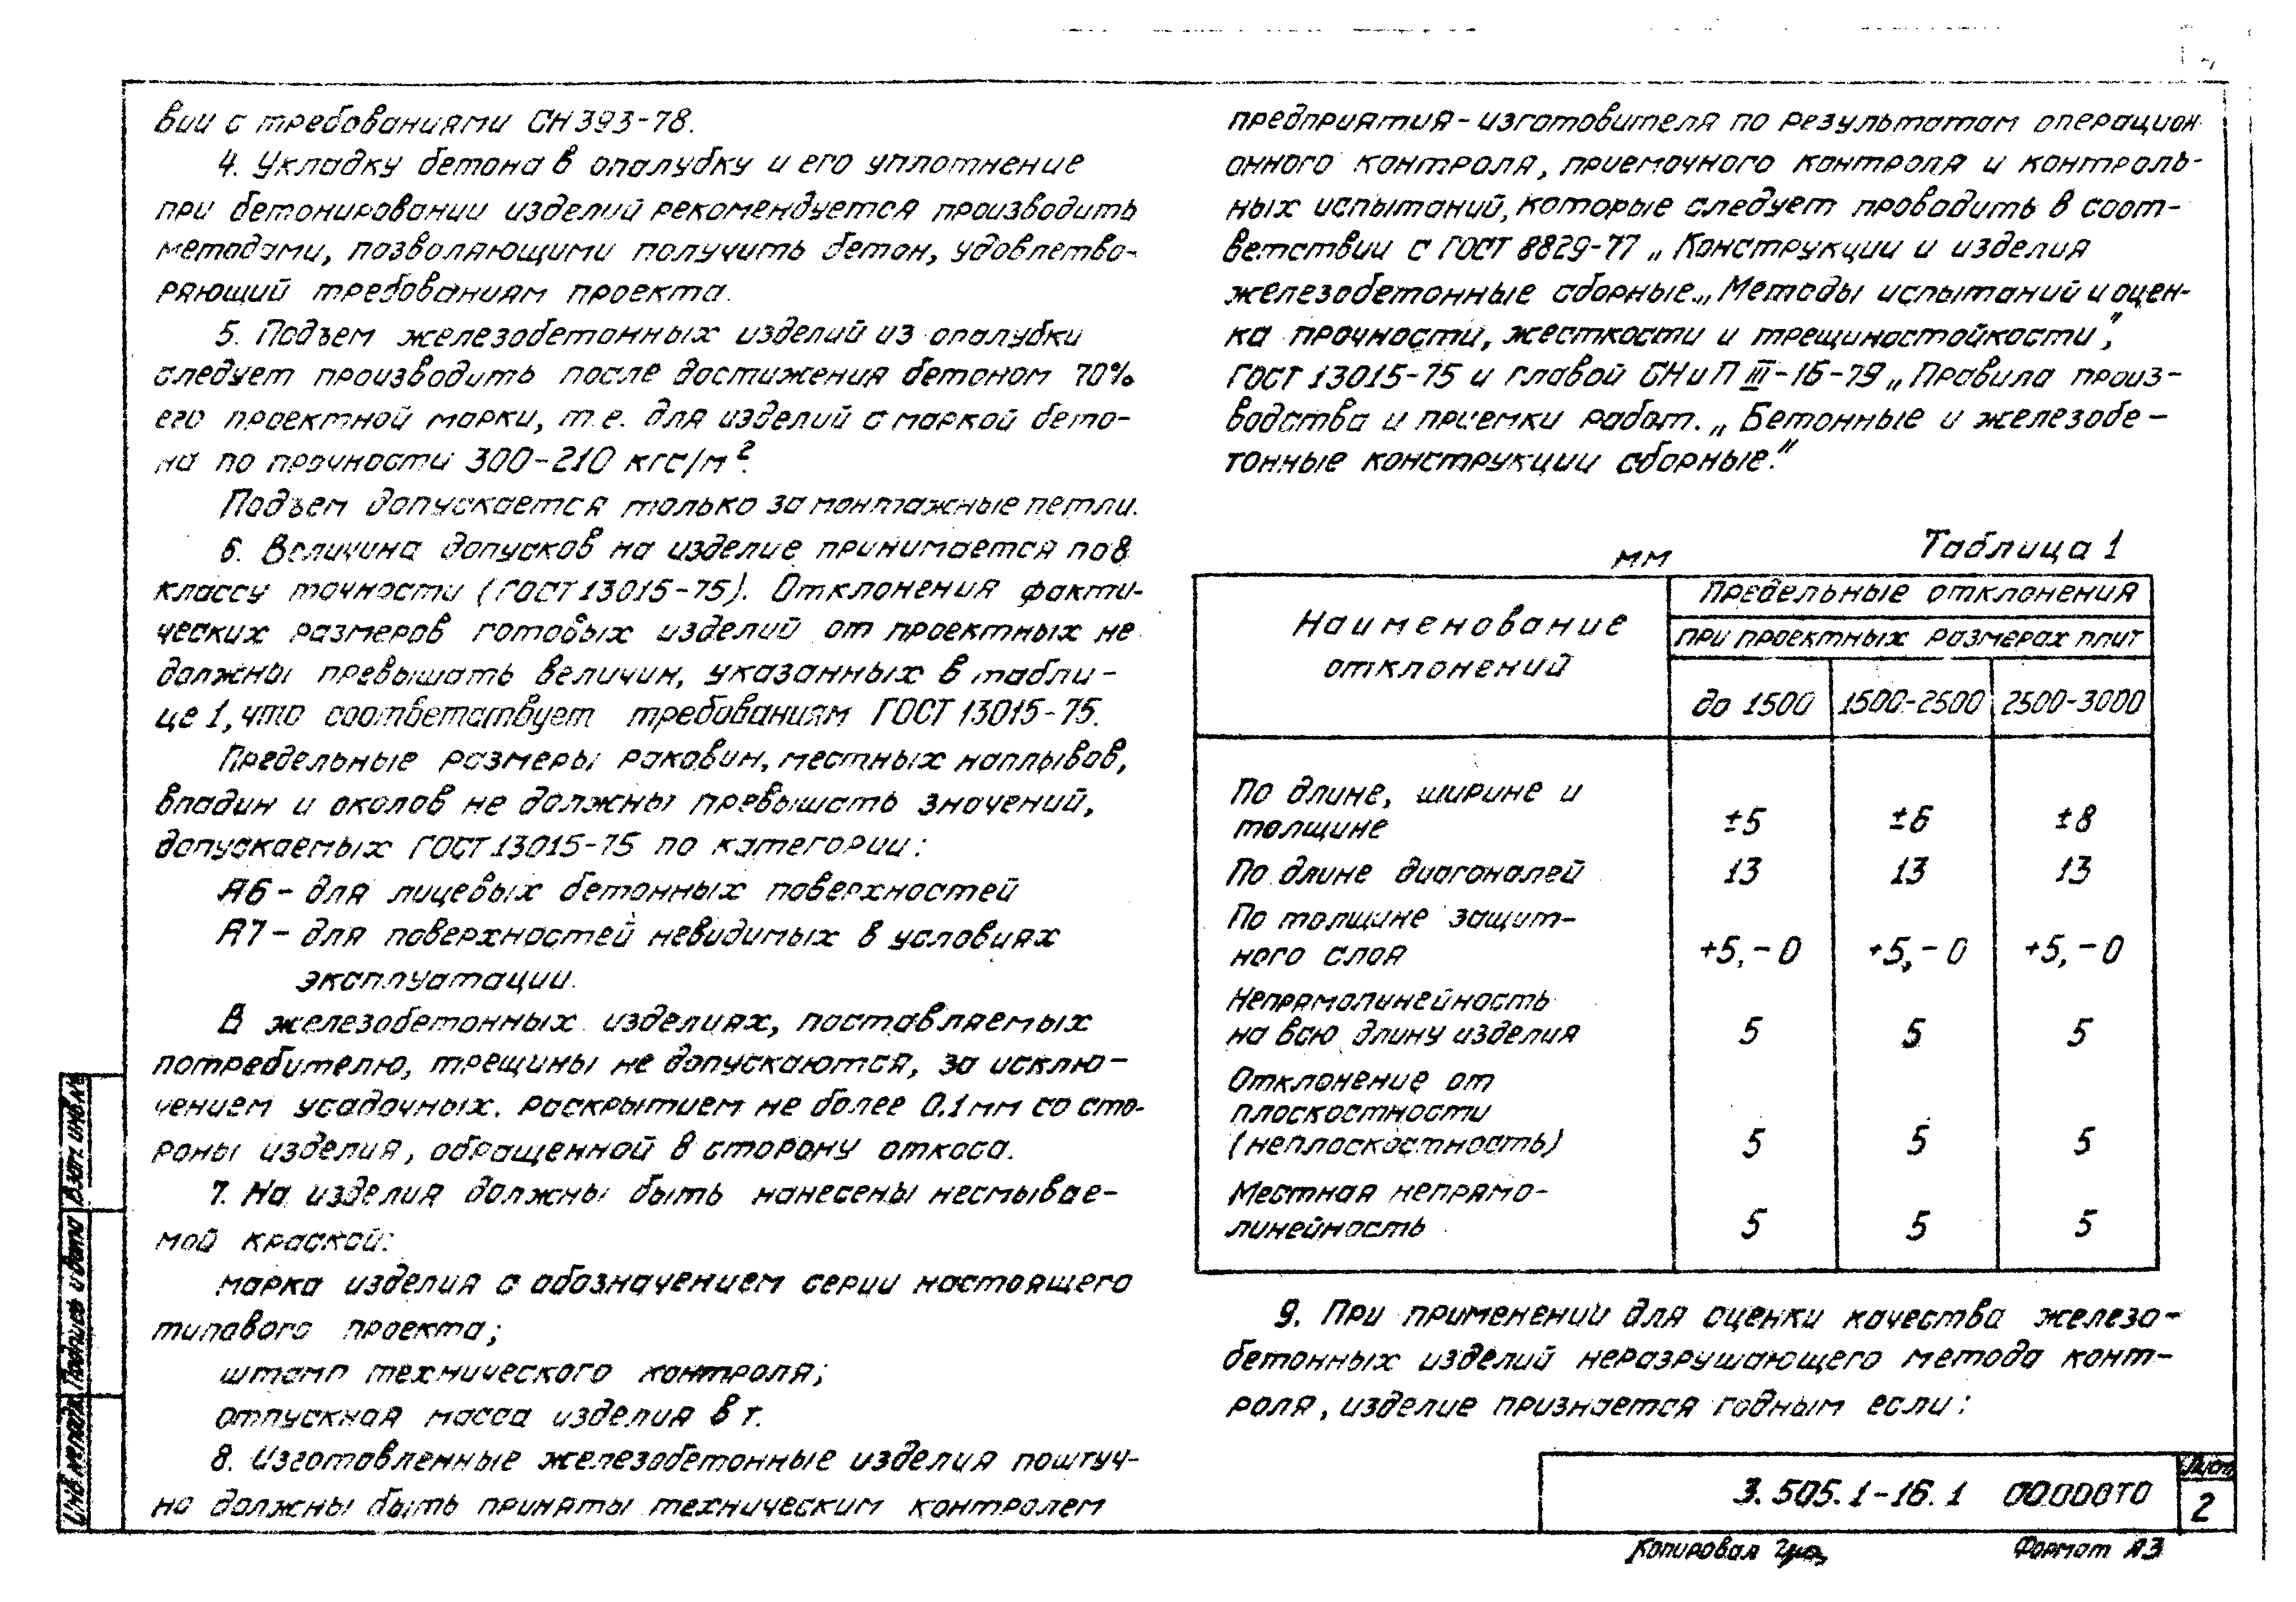 вии с требованиями СН 393-78.
4. Укладку бетона в опалубку и его уплотнение
при бетонировании изделий рекомендуется производить
методами, позволяющими получить бетон, удовлетво-
ряющий требованиям проекта.
5. Подъем железобетонных изделий из опалубки
следует производить после достижения бетоном 70%
его проектной марки, т.е. для изделий с маркой бето-
на по прочности 300-210 кгс/м².
Подъем допускается только за монтажные петли.
6. Величина допусков на изделие принимается по 8
классу точности (ГОСТ 13015-75). Отклонения факти-
ческих размеров готовых изделий от проектных не
должны превышать величин, указанных в табли-
це 1, что соответствует требованиям ГОСТ 13015-75.
Предельные размеры раковин, местных наплывов,
впадин и околов не должны превышать значений,
допускаемых ГОСТ 13015-75 по категории:
А6 - для лицевых бетонных поверхностей
А7 - для поверхностей невидимых в условиях
эксплуатации.
В железобетонных изделиях, поставляемых
потребителю, трещины не допускаются, за исклю-
чением усадочных, раскрытием не более 0.1 мм со сто-
роны изделия, обращенной в сторону откоса.
7. На изделия должны быть нанесены несмывае-
мой краской:
марка изделия с обозначением серии настоящего
типового проекта;
штамп технического контроля;
отпускная масса изделия в т.
8. Изготовленные железобетонные изделия поштуч-
но должны быть приняты техническим контролем
предприятия-изготовителя по результатам операцион
онного контроля, приемочного контроля и контроль-
ных испытаний, которые следует проводить в соот-
ветствии с ГОСТ 8829-77 „Конструкции и изделия
железобетонные сборные. „Методы испытаний и оцен-
ка прочности, жесткости и трещиностойкости",
ГОСТ 13015-75 и главой СНиП III-16-79 „Правила произ-
водства и приемки работ. „Бетонные и железобе-
тонные конструкции сборные."
мм Таблица 1
Наименование отклонений
Предельные отклонения
при проектных размерах плит
до 1500 1500-2500 2500-3000
По длине, ширине и
толщине ±5 ±6 ±8
По длине диагоналей 13 13 13
По толщине защит-
ного слоя +5,-0 +5,-0 +5,-0
Непрямолинейность
на всю длину изделия 5 5 5
Отклонение от
плоскостности
(неплоскостность) 5 5 5
Местная непрямо-
линейность 5 5 5
9. При применении для оценки качества железо-
бетонных изделий неразрушающего метода конт-
роля, изделие признается годным если:
3.505.1-16.1 00.000ТО
Лист
2
Копировал
Формат А3
Инв.№ подл. Подпись и дата Взам. инв.№